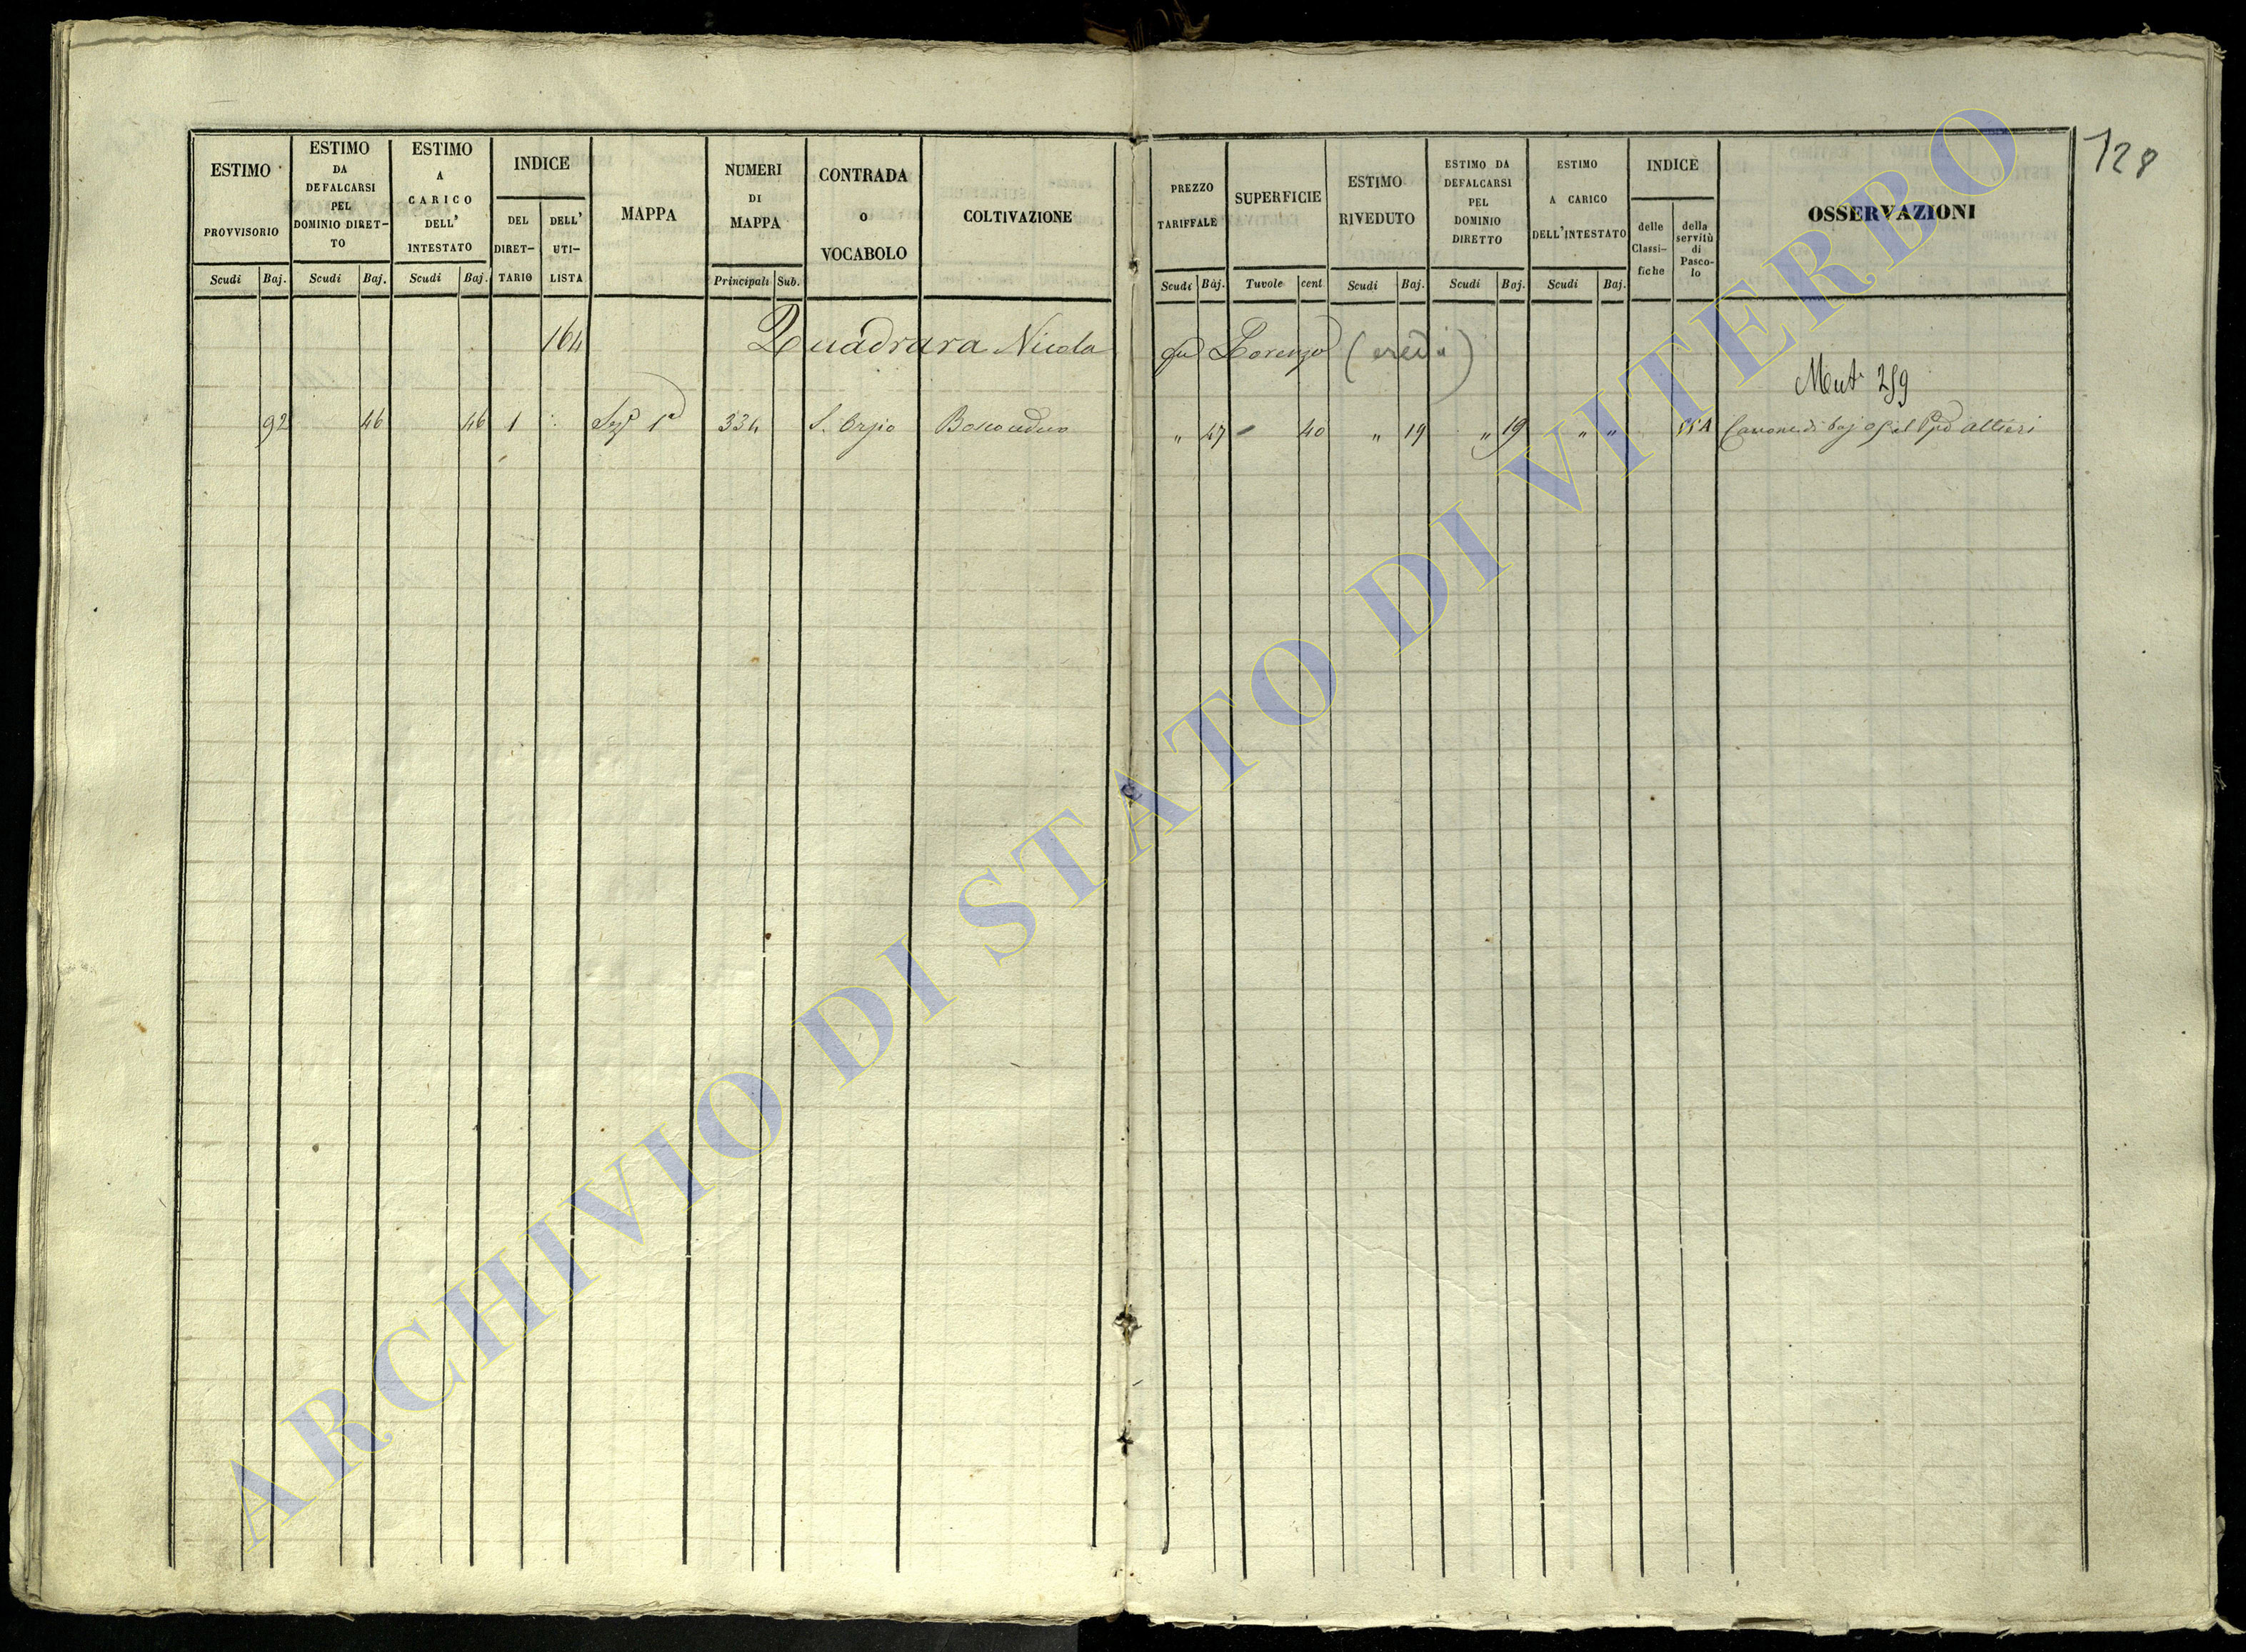 128
ESTIMO PROVVISORIO
Scudi Baj.
ESTIMO
DA
DEFALCARSI
PEL
DOMINIO DIRET-
TO
Scudi Baj.
ESTIMO
A
CARICO
DELL'
INTESTATO
Scudi Baj.
INDICE
DEL
DIRET-
TARIO
DELL'
UTI-
LISTA
MAPPA
NUMERI
DI
MAPPA
Principali Sub.
CONTRADA
O
VOCABOLO
COLTIVAZIONE
PREZZO
TARIFFALE
Scudi Baj.
SUPERFICIE
Tuvole cent
ESTIMO
RIVEDUTO
Scudi Baj.
ESTIMO DA
DEFALCARSI
PEL
DOMINIO
DIRETTO
Scudi Baj.
ESTIMO
A CARICO
DELL'INTESTATO
Scudi Baj.
INDICE
delle
Classi-
fiche
della
servitù
di
Pasco-
lo
OSSERVAZIONI
164 Quadrara Nicola qu Lorenzo (eredi)
Mut 259
92 46 46 1 Sez 1a 334 S. Orsio Bosco ceduo " 47 40 " 19 " 19 " " Canone di baj Altieri
ARCHIVIO DI STATO DI VITERBO